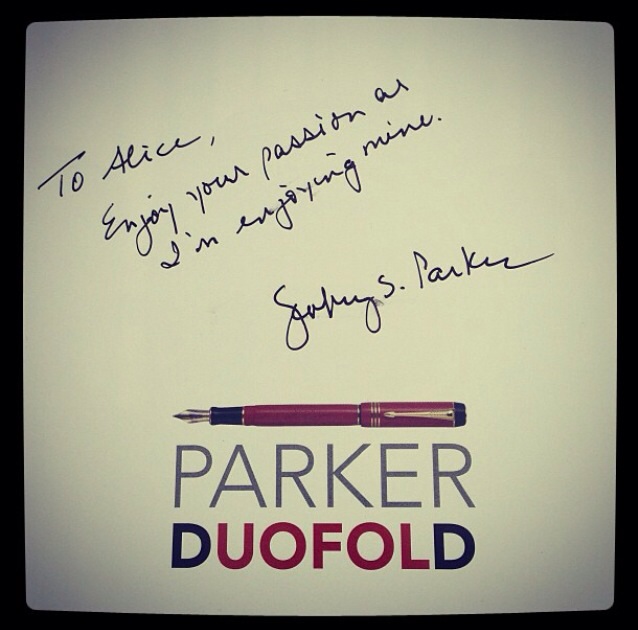 To Alice,
Enjoy your passion as
I'm enjoying mine.
Geoffrey S. Parker
PARKER
DUOFOLD